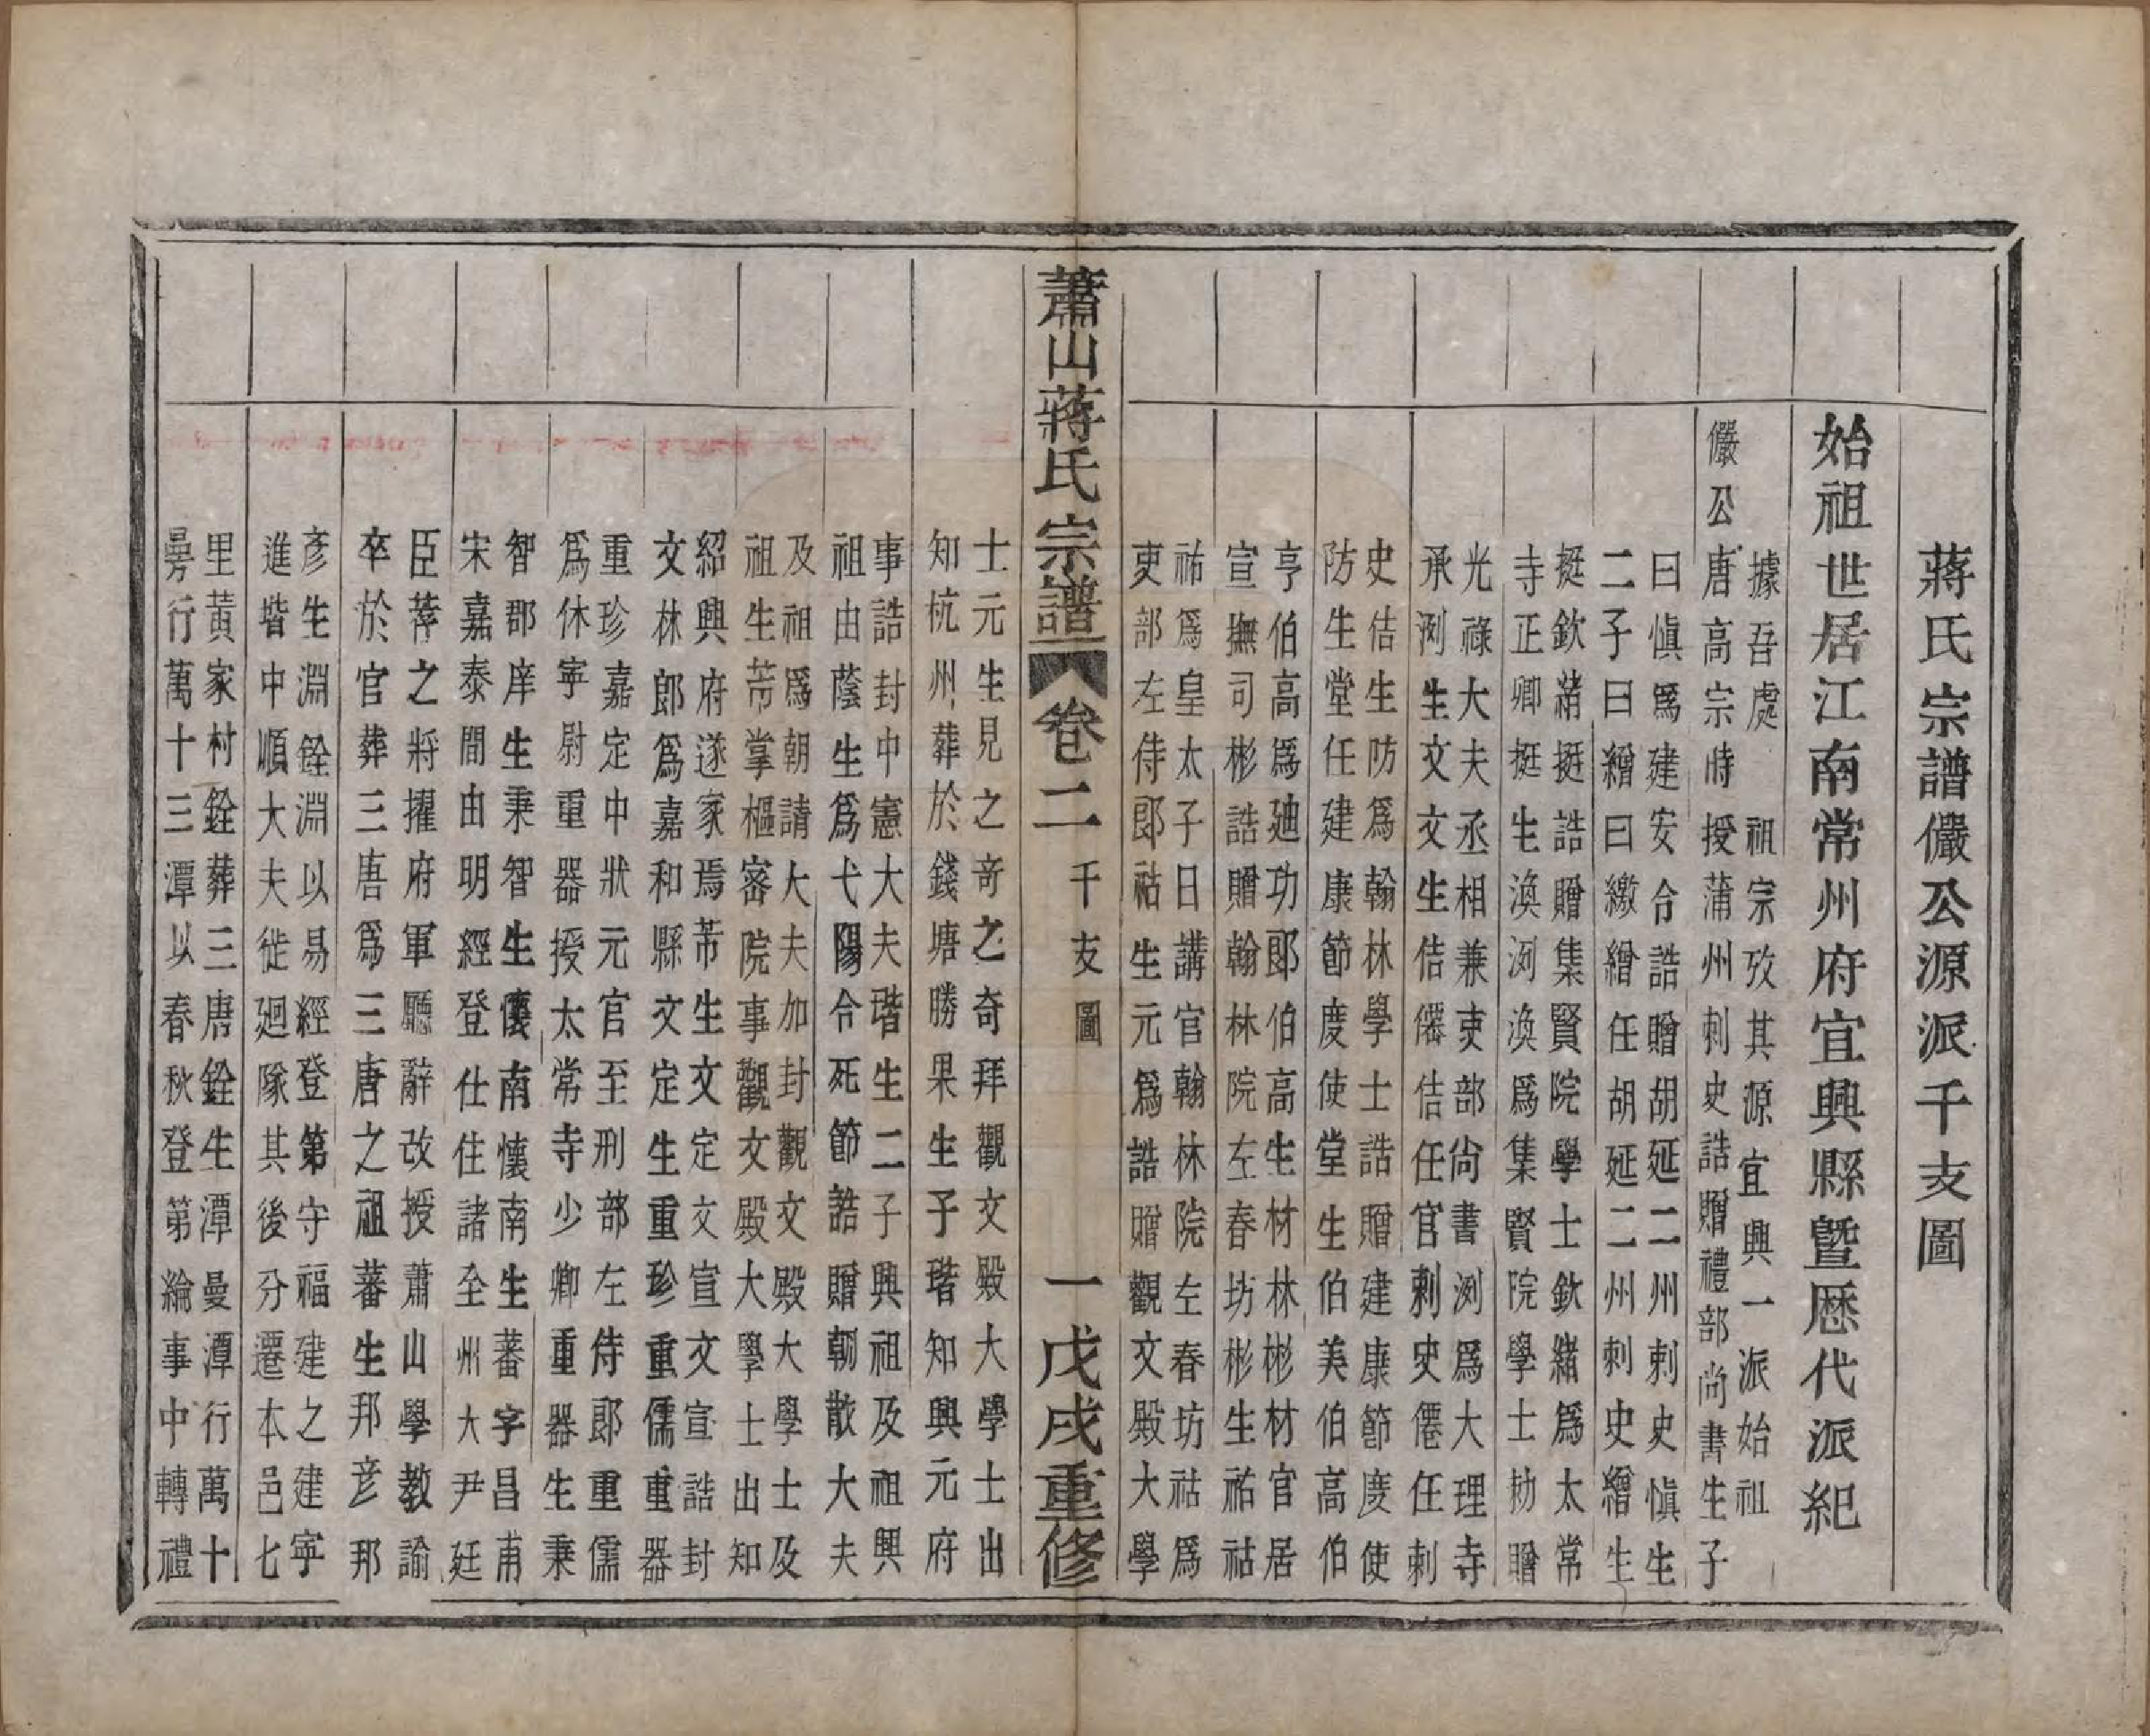 蔣氏宗譜儼公源派千支圖
始祖世居江南常州府宜興縣暨歷代派紀
儼公
據吾處 祖宗攷其源宜興一派始祖
唐高宗時授蒲州刺史誥贈禮部尚書生子
曰愼爲建安令誥贈胡延二州刺史愼生
二子曰繒曰繳繒任胡延二州刺史繒生
挺欽緒挺誥贈集賢院學士欽緒爲太常
寺正卿挺生渙洌渙爲集賢院學士劫贈
光祿大夫丞相兼吏部尙書洌爲大理寺
承洌生文文生佶僊佶任官刺史僊任刺
史佶生防爲翰林學士誥贈建康節度使
防生堂任建康節度使堂生伯美伯高伯
亨伯高爲廸功郞伯高生材林彬材官居
宣撫司彬誥贈翰林院左春坊彬生祐祜
祐爲皇太子日講官翰林院左春坊祜爲
吏部左侍郞祜生元爲誥贈觀文殿大學
蕭山蔣氏宗譜 卷二 千支圖 一 戊戌重修
士元生見之奇之奇拜觀文殿大學士出
知杭州葬於錢塘勝果生子瑎知興元府
事誥封中憲大夫瑎生二子興祖及祖興
祖由蔭生爲弋陽令死節誥贈朝散大夫
及祖爲朝請大夫加封觀文殿大學士及
祖生芾掌樞密院事觀文殿大學士出知
紹興府遂家焉芾生文定文宣文宣誥封
文林郎爲嘉和縣文定生重珍重儒重器
重珍嘉定中狀元官至刑部左侍郎重儒
爲休寧尉重器授太常寺少卿重器生秉
智郡庠生秉智生懷南懷南生蕃字昌甫
宋嘉泰間由明經登仕住諸全州大尹廷
臣荐之將擢府軍廳辭改授蕭山學教諭
卒於官葬三唐爲三唐之祖蕃生邦彦邦
彥生淵銓淵以易經登第守福建之建寧
進堦中順大夫徙廻隊其後分遷本邑七
里黃家村銓葬三唐銓生潭曼潭行萬十
曼行萬十三潭以春秋登第綸事中轉禮